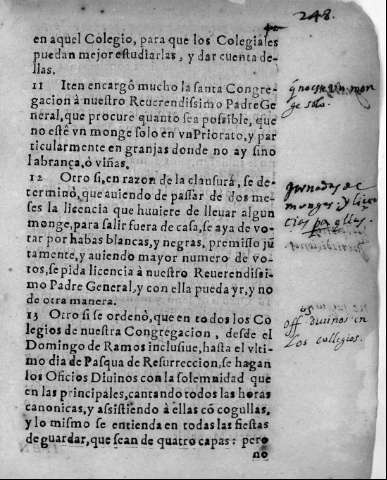 248.
en aquel Colegio, para que los Colegiales
puedan mejor estudiarlas, y dar cuenta de-
llas.
11 Iten encargô mucho la santa Congre-
gacion à nuestro Reuerendissimo Padre Ge
neral, que procure quanto sea possible, que
no estè vn monge solo en vn Priorato, y par
ticularmente en granjas donde no ay sino
labrança, ò viñas.
12 Otro si, en razon de la clausura, se de-
terminò, que auiendo de passar de dos me-
ses la licencia que huuiere de lleuar algun
monge, para salir fuera de casa, se aya de vo-
tar por habas blancas, y negras, premisso jũ
tamente, y auiendo mayor numero de vo-
tos, se pida licencia à nuestro Reuerendissi-
mo Padre General, y con ella pueda yr, y no
de otra manera.
13 Otro si se ordenò, que en todos los Co
legios de nuestra Congregacion, desde el
Domingo de Ramos inclusiue, hasta el vlti-
mo dia de Pasqua de Resurreccion, se hagan
los Oficios Diuinos con la solemnidad que
en las principales, cantando todos las horas
canonicas, y assistiendo à ellas cõ cogullas,
y lo mismo se entienda en todas las fiestas
de guardar, que sean de quatro capas: pero
no
q̃ no este vn mon
ge solo.
Jornadas de
monges, y licen
cias para ellas.
off.os diuinos en
Los collegios.